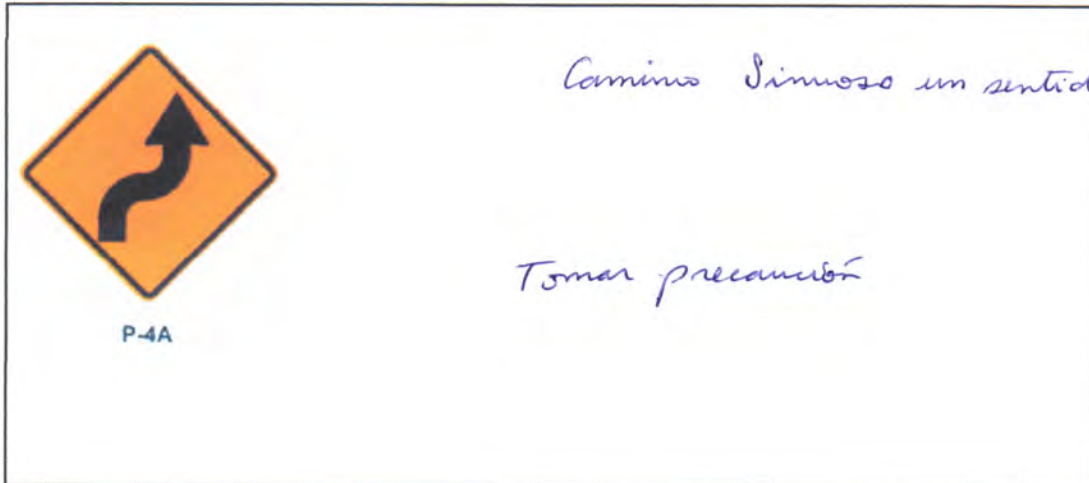 Camino Sinuoso un sentid
Tomar precaución
P-4A